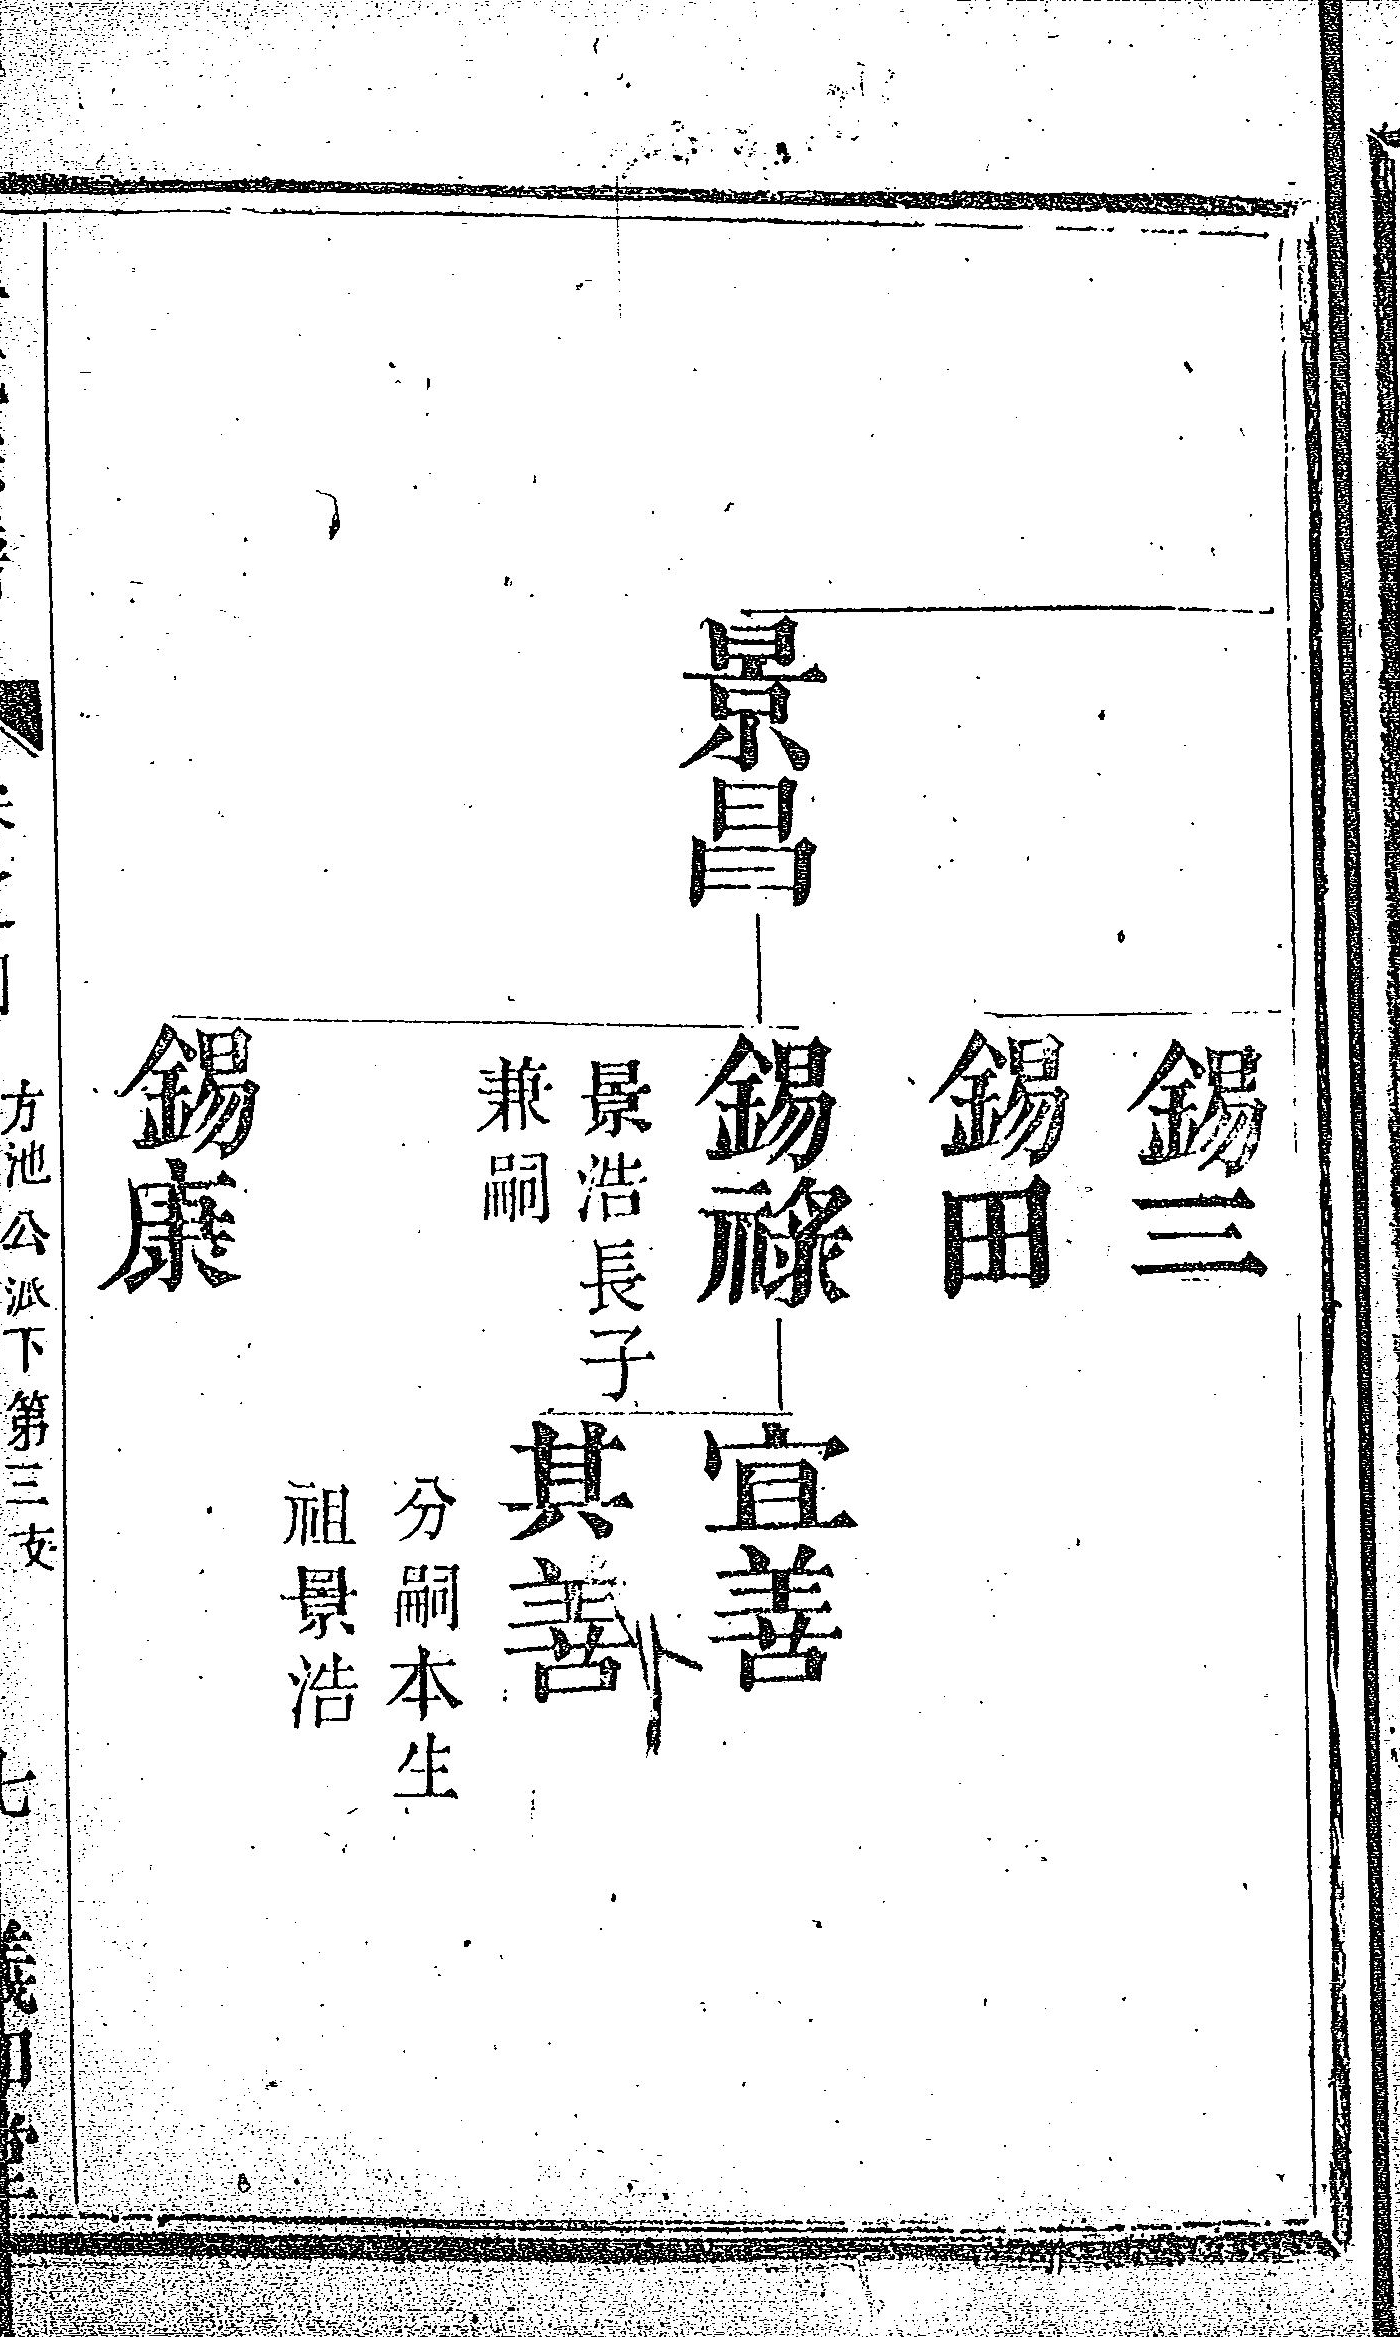 錫三
錫田
景昌
錫祿
景浩長子
兼嗣
錫康
宜善
其善
分嗣本生
祖景浩
方池公派下第三支
七